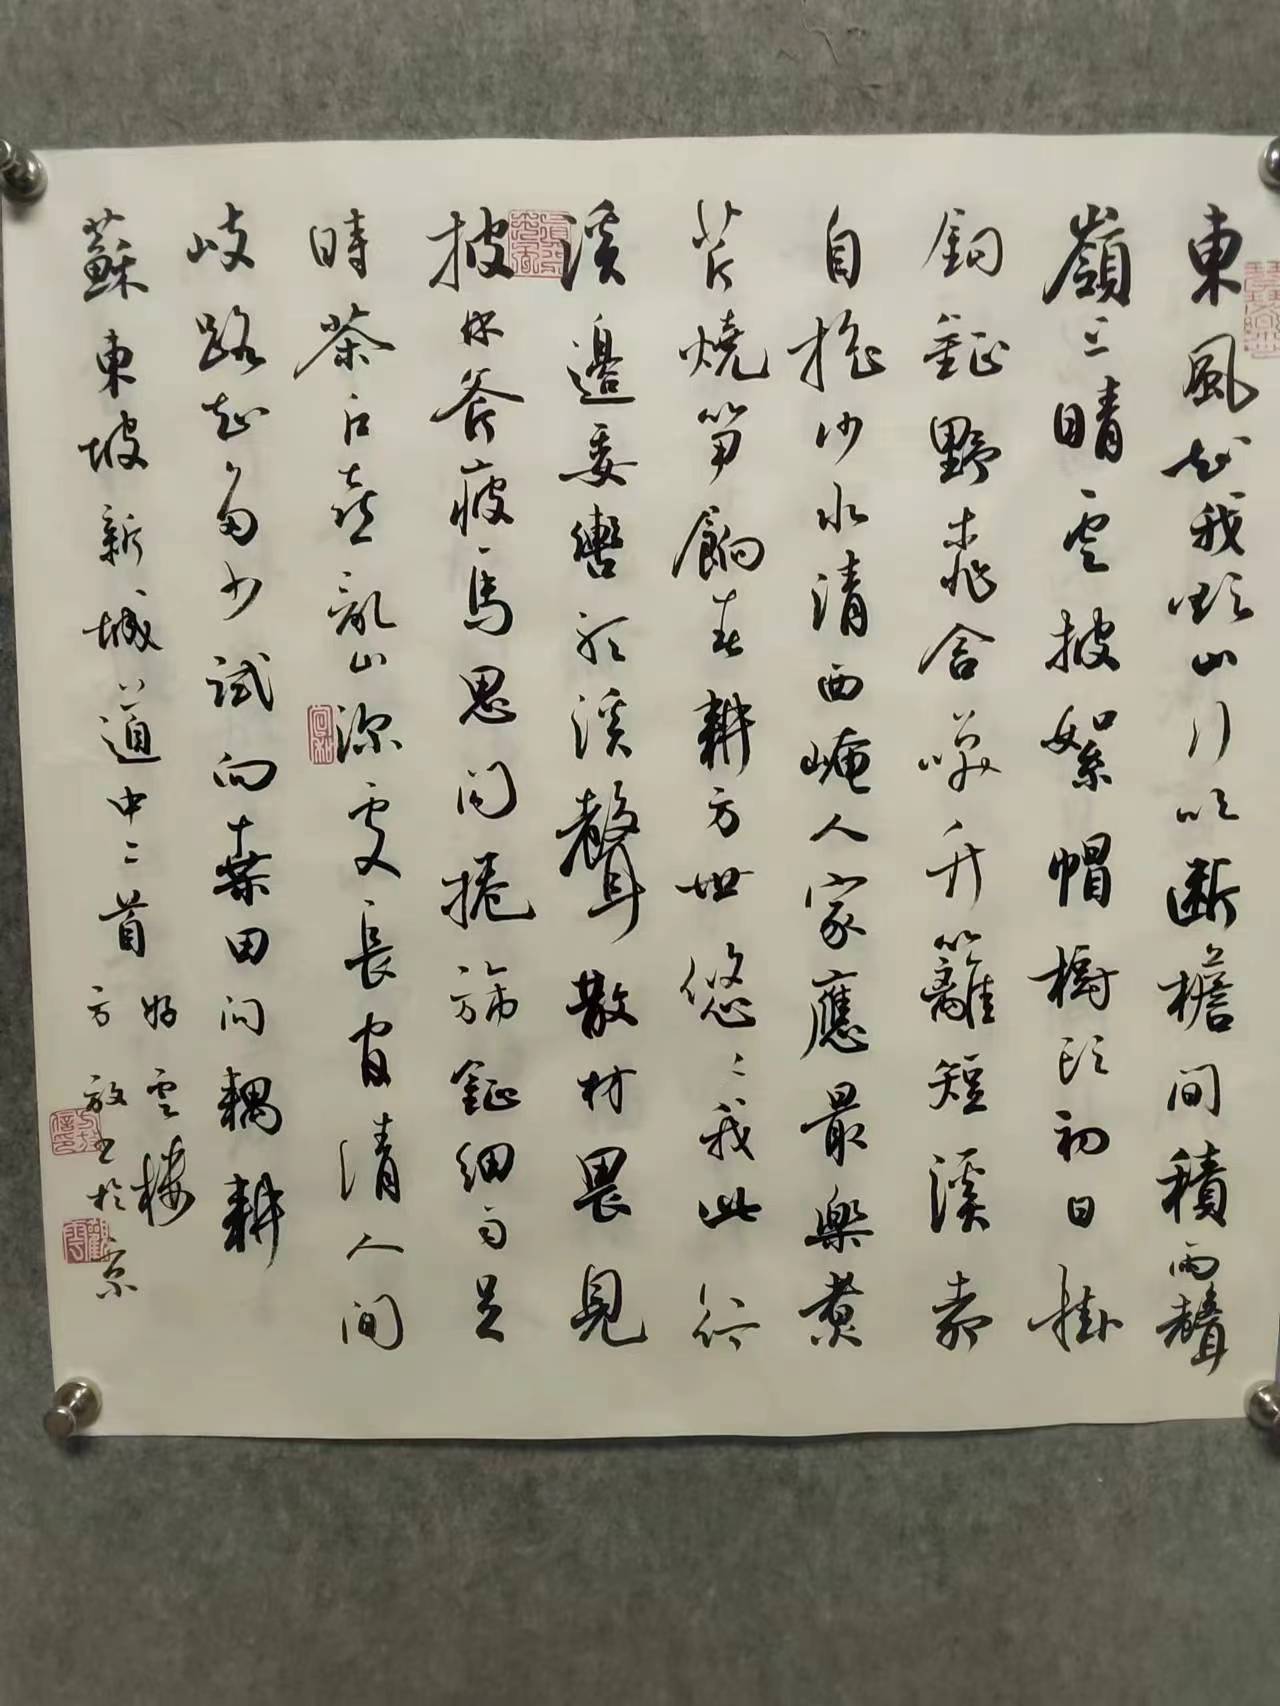 東風知我欲山行吹斷檐間積雨聲
嶺上晴雲披絮帽樹頭初日掛
銅鉦野桃含笑竹籬短溪柳
自搖沙水清西崦人家應最樂煮
芹燒筍餉春耕身世悠〻我此行
溪邊委轡聽溪聲散材畏見
披林斧疲馬思聞捲旆鉦細雨足
時茶戶喜亂山深處長官清人間
岐路知多少試向桑田問耦耕
蘇東坡新城道中二首
好雲樓
方放書於京